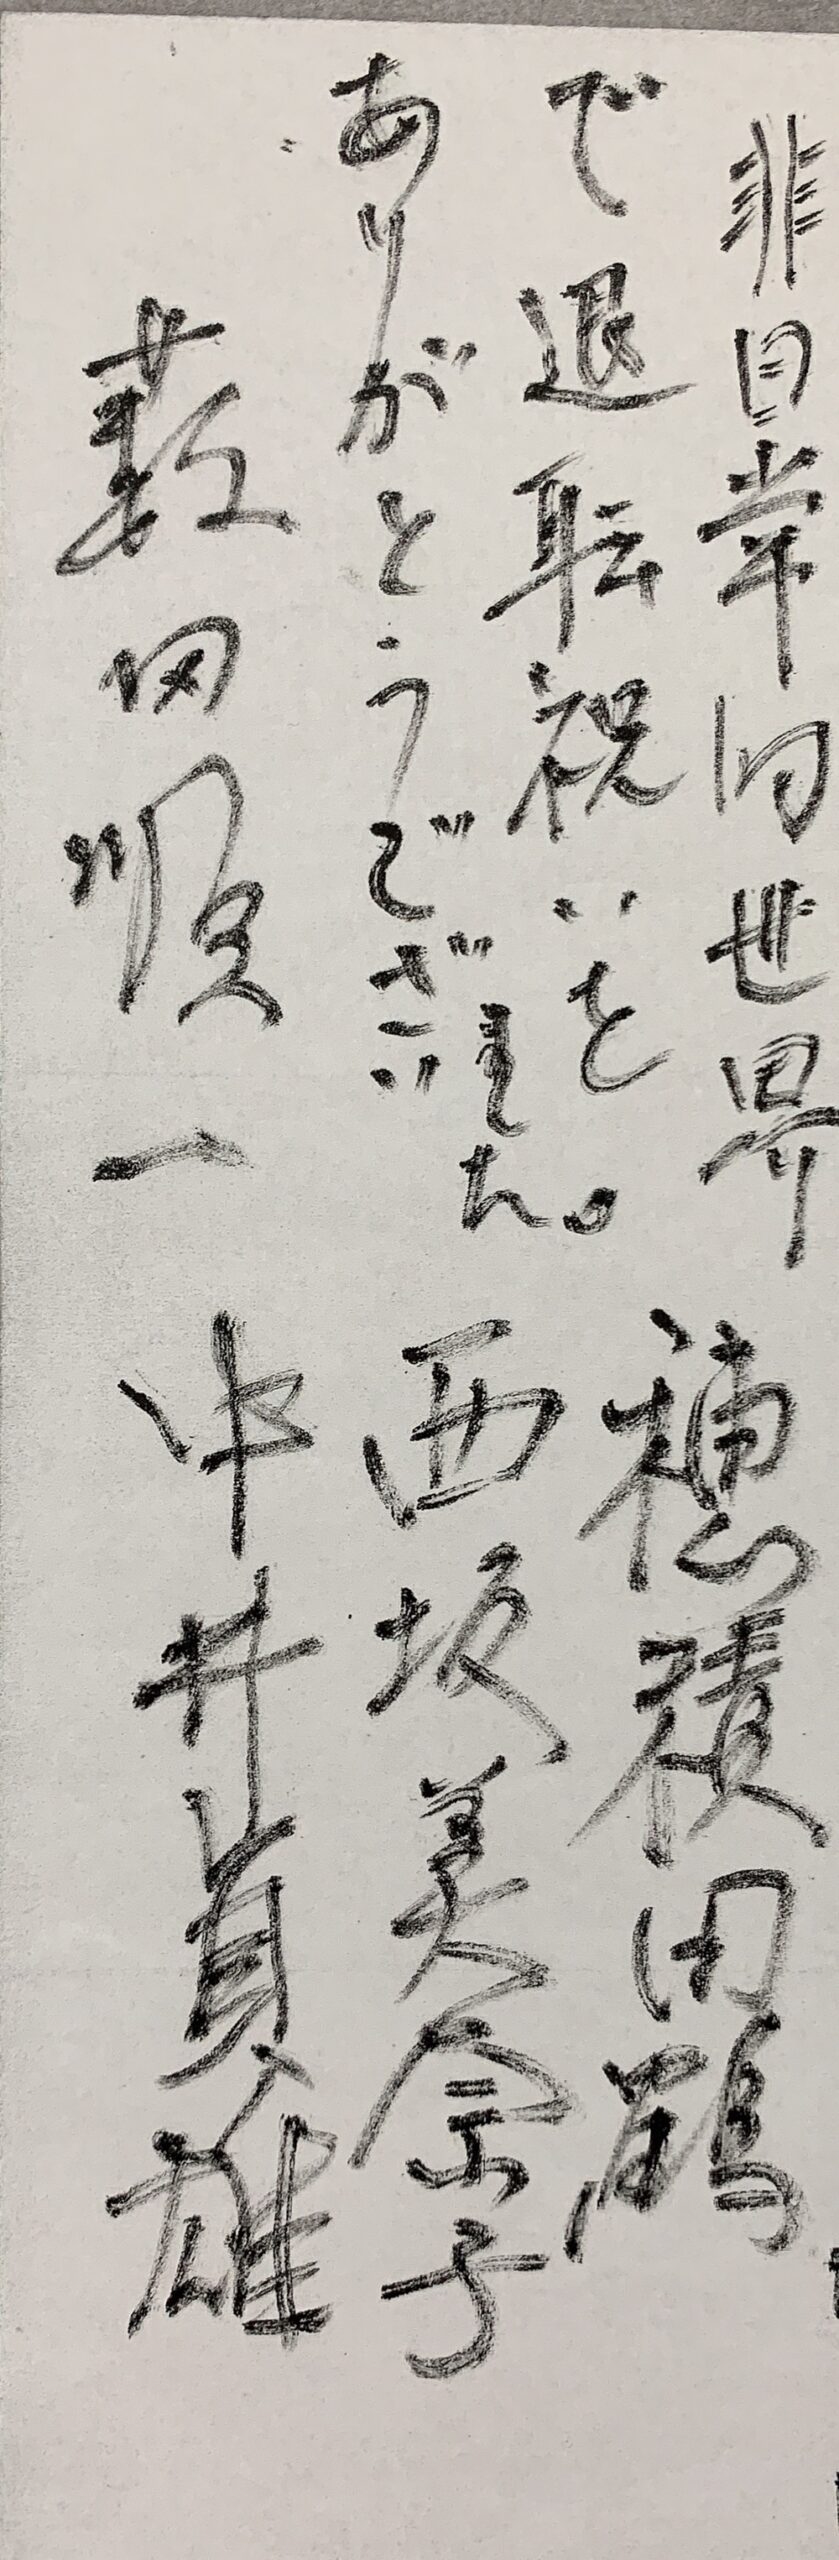 非日常的世界
で退転祝いを。
ありがとうございました
藪田順一
穂積田鶴
西坂美奈子
中井貞雄